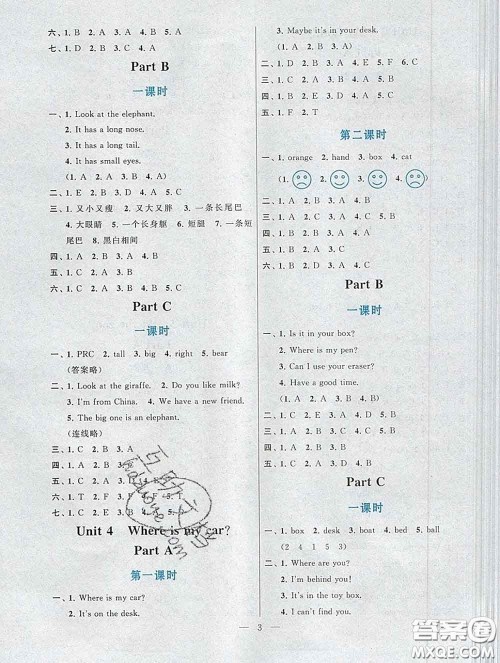 六、1. B 2. A 3. B 4. B 5. A
七、1. D 2. B 3. A 4. C
Part B
一课时
一、1. Look at the elephant.
2. It has a long nose.
3. It has a long tail.
4. It has small eyes.
(1. A 2. A 3. B 4. B)
二、1. B 2. D 3. E 4. C 5. A
三、1. 又小又瘦 2. 又大又胖 3. 一条长尾巴
4. 大眼睛 5. 一个长身躯 6. 短腿 7. 一条短
尾巴 8. 黑白相间
四、1. A 2. B 3. A 4. B 5. C
五、1. A 2. A 3. B 4. A 5. B
Part C
一课时
一、1. PRC 2. tall 3. big 4. right 5. bear
(答案略)
二、1. Look at the giraffe. 2. Do you like milk?
3. I'm from China. 4. We have a new friend.
5. The big one is an elephant.
(连线略)
三、1. C 2. A 3. B 4. B 5. A
四、1. C 2. A 3. B
五、1. C 2. A 3. D
六、1. T 2. F 3. T 4. F 5. T
七、1. C 2. B 3. C 4. A 5. C
Unit 4 Where is my car?
Part A
第一课时
一、1. Where is my car?
2. It's on the desk.
3. Maybe it's in your desk.
(1. A 2. B 3. A)
二、1. B 2. D 3. A 4. E 5. F 6. C
三、1. C 2. D 3. A 4. B
四、1. D 2. C 3. E 4. A 5. B
五、1. F 2. F 3. T
第二课时
一、1. orange 2. hand 3. box 4. cat
(1. 2. 3. 4. )
二、1. B 2. A 3. B 4. C 5. C
三、1. A 2. A 3. B 4. A 5. C
四、1. B 2. A 3. B
五、1. A 2. B 3. A
六、1. B 2. C 3. D 4. A
Part B
一课时
一、1. Is it in your box?
2. Where is my pen?
3. Can I use your eraser?
4. Have a good time.
(1. B 2. A 3. B 4. A)
二、1. C 2. E 3. A 4. B 5. D
三、1. B 2. A 3. B 4. B 5. B
四、1. C 2. A 3. D 4. B
Part C
一课时
一、1. box 2. desk 3. boat 4. bed 5. ball
(2 4 1 5 3)
二、1. Where are you?
2. I'm behind you!
3. It's in the toy box.
4. I can't find you.
3
答案圈
MXQE.COM